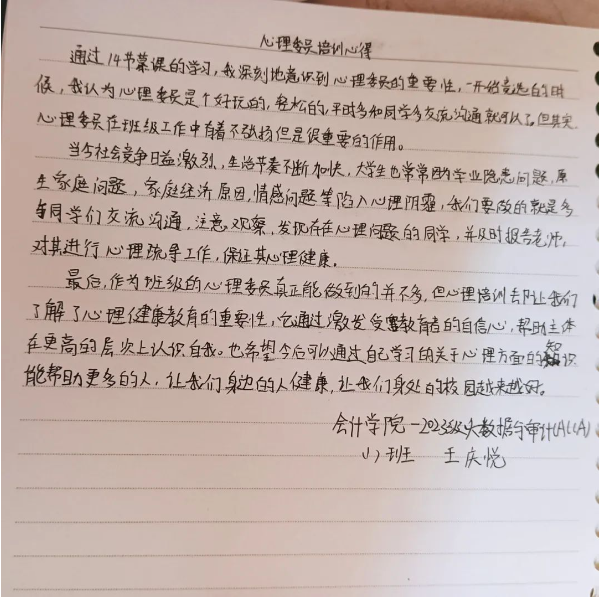 心理委员培训心得
通过14节慕课的学习,我深刻地意识到心理委员的重要性,一开始竞选的时
候,我认为心理委员是个好玩的,轻松的,平时多和同学多交流沟通就可以了,但其实
心理委员在班级工作中有着不张扬但是很重要的作用。
当今社会竞争日益激烈,生活节奏不断加快,大学生也常常因为学业隐患问题,原
生家庭问题,家庭经济原因,情感问题等陷入心理阴霾,我们要做的就是多
与同学们交流沟通,注意观察,发现存在心理问题的同学,并及时报告老师,
对其进行心理疏导工作,保证其心理健康。
最后,作为班级的心理委员真正能做到的并不多,但心理培训却让我们
了解了心理健康教育的重要性,它通过激发受教育者的自信心,帮助主体
在更高的层次上认识自我。也希望今后可以通过自己学习的关于心理方面的知识
能帮助更多的人,让我们身边的人健康,让我们身处的校园越来越好。
会计学院-2023级大数据与审计(ACCA)
(1)班 王庆悦